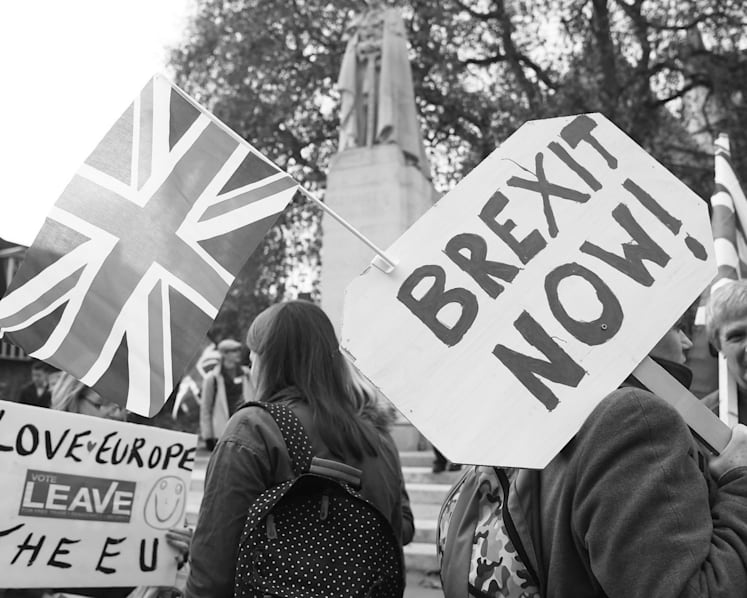 BREXIT
NOW!
LOVE♥EUROPE
VOTE
LEAVE
THE EU